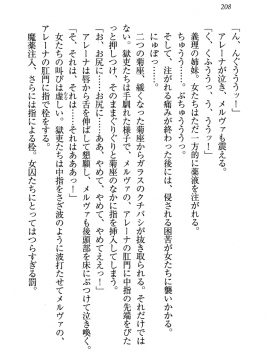 208
「ん、んぐううぅッ！」
アレーナが泣き、メルヴァも震える。
「く、くふううっ、うううッ！」
ぢゅううう……。
義理の姉妹。女たちはただ一方的に薬液を注がれる。
ちゅううう……。注がれる痛みが終わった後には、侵される困苦が女たちに襲いかかる。
にゅぽっ……。
二つの菊座。緩くなった菊座からガラスのクチバシが抜き取られる。それだけで
はない。獄吏たちは手馴れた様子で、メルヴァの、アレーナの肛門に中指の先端をぴた
っと押しつけ、ゆっくりくりと菊座のなかに指を挿入してしまう。
「お、お尻に……ああ、やめて、やめてくださいッ！」
「お、お尻に……ッ。やめ、やめて、やめてえええッ！」
「そ、それは、それは、それはああああッ！」
アレーナは唇から舌を伸ばして懇願し、メルヴァも後頭部を床にぶつけて泣き喚く。
女たちの叫びは虚しい。獄吏たちは中指をさざ波のように波打たせてメルヴァの、
アレーナの肛門に指で栓をする。
魔薬注入、さらには指による栓。女囚たちにとってはつらすぎる罰。